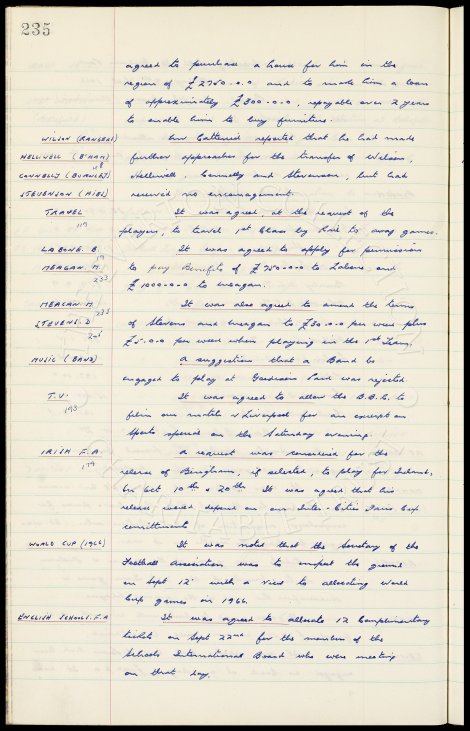 235
agreed to purchase a house for him in the
region of £2750-0-0 and to make him a loan
of approximately £300-0-0, repayable over 2 years
to enable him to buy furniture.
WILSON (RANGERS) Mr Catterick reported that he had made
HELLIWELL (B'HAM) further approaches for the transfer of Wilson,
CONNELLY (BURNLEY) Helliwell, Connelly and Stevenson, but had
STEVENSON (HIBS) received no encouragement.
TRAVEL It was agreed, at the request of the
119 players, to travel 1st Class by Rail to away games.
LABONE. B. It was agreed to apply for permission
MEAGAN. M. to pay Benefits of £750-0-0 to Labone and
233 £1000-0-0 to Meagan.
MEAGAN. M. It was also agreed to amend the terms
STEVENS. D of Stevens and Meagan to £30-0-0 per week plus
£5-0-0 per week when playing in the 1st Team.
MUSIC (BAND) A suggestion that a Band be
engaged to play at Goodison Park was rejected.
T.V. It was agreed to allow the B.B.C. to
193 film our match v Liverpool for an excerpt on
Sports special on the Saturday evening.
IRISH F.A. A request was considered for the
179 release of Bingham, if selected, to play for Ireland,
on Oct 10th & 20th. It was agreed that his
release would depend on our Inter-Cities Fairs Cup
commitments.
WORLD CUP (1966) It was noted that the Secretary of the
Football Association was to inspect the ground
on Sept 12 with a view to allocating World
Cup games in 1966.
ENGLISH SCHOOLS. F.A It was agreed to allocate 12 Complimentary
tickets on Sept 22nd for the members of the
Schools International Board who were meeting
on that day.